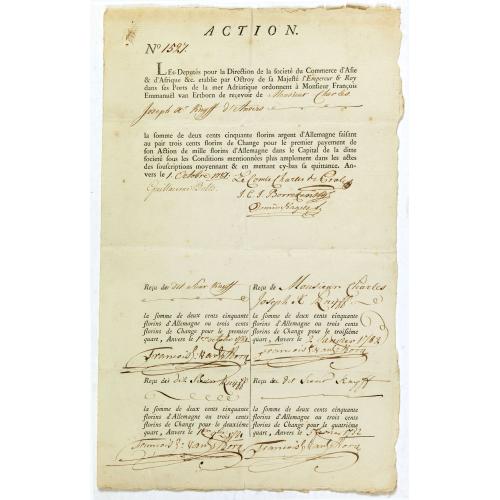 ACTION.
No 1527.
LES Deputés pour la Direction de la societé du Commerce d'Asie
& d'Afrique &c. etablie par Octroy de sa Majesté l'Empereur & Roy
dans ses Ports de la mer Adriatique ordonnent à Monsieur François
Emmanuel van Ertborn de reçevoir de Monsieur Charles
Joseph Knyff d'Anvers
la somme de deux cents cinquante florins argent d'Allemagne faisant
au pair trois cents florins de Change pour le premier payement de
son Action de mille florins d'Allemagne dans le Capital de la dite
societé sous les Conditions mentionnées plus amplement dans les actes
des souscriptions moyennant & en mettant cy-bas sa quittance. An-
vers le 1 Octobre 1781. Le Comte Charles de
Guillaume Bolts. J. C. J.
Reçu de dit Sieur Knyff
la somme de deux cents cinquante
florins d'Allemagne ou trois cents
florins de Change pour le premier
quart, Anvers le 1781
François E. van Ertborn
Reçu de dit Sieur Knyff
la somme de deux cents cinquante
florins d'Allemagne ou trois cents
florins de Change pour le deuxième
quart, Anvers le 1781
François E. van Ertborn
Reçu de Monsieur Charles
Joseph Knyff
la somme de deux cents cinquante
florins d'Allemagne ou trois cents
florins de Change pour le troisième
quart, Anvers le 2 Janvier 1782
François E. van Ertborn
Reçu de dit Sieur Knyff
la somme de deux cents cinquante
florins d'Allemagne ou trois cents
florins de Change pour le quatrième
quart, Anvers le 1782
François E. van Ertborn